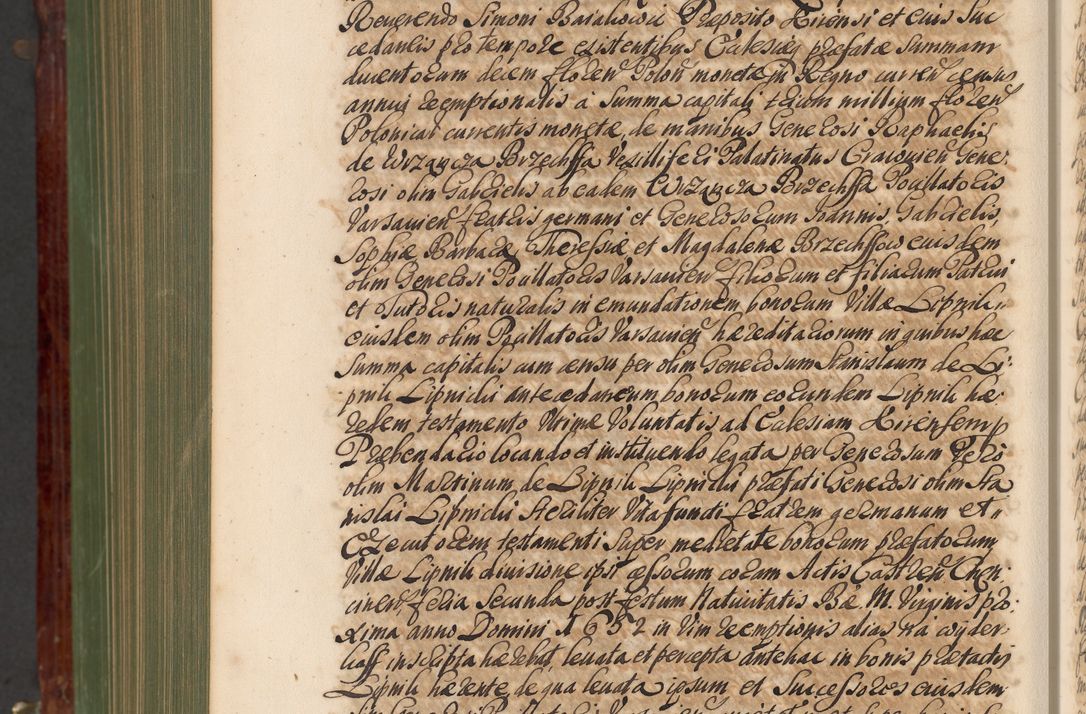 Reuerendo Simoni Barahowic Præposito Xirensi et eius Suc
cedaneis pro tempore existentibus Ecclesiæ præfatæ Summam
ducentorum decem floren Polon monetæ in Regno curren census
annui reemptionalis à Summa capitali trium millium floren
Polonical currentis monetæ, de manibus Generosi Raphaelis
de Wrzawcza Brzechffa Vexilliferi Palatinatus Cracouien Gene:
rosi olim Gabrielis ab eadem Wrzawcza Brzechffa Pocillatoris
Varsauien fratris germani et Generosorum Ioannis, Gabrielis,
Sophiæ Barbaræ, Theressiæ et Magdalenæ Brzechffow eiusdem
olim Generosi Pocillatoris Varsauien filiorum et filiarum Patrui
et Tutoris naturalis in emundationem bonorum Villæ Lipnik,
eiusdem olim Pocillatoris Varsauien hæreditariorum in quibus hæc
Summa capitalis cum censu per olim Generosum Stanislaum de Li:
pnik Lipnicki antecedaneum bonorum eorundem Lipnik hæ:
redem testamento Vltimæ Voluntatis ad Ecclesiam Xirensem p
Præbendario locando et instituendo legata per Generosum vero
olim Martinum de Lipnik Lipnicki præfati Generosi olim Sta
nislai Lipnicki Steriliter Vita functi fratrem germanum et
Executorem testamenti super medietate bonorum præfatorum
Villæ Lipnik diuisione ipsi cessorum coram Actis Castren Chen:
cinen feria Secunda post festum Natiuitatis Bæ M. Virginis pro:
xima anno Domini 1652 in Vim reemptionis alias ná wyder:
kaff inscripta hærebat, leuata et percepta antehac in bonis prætactis
Lipnik hærente, de qua leuata ipsum et Successores eiusdem